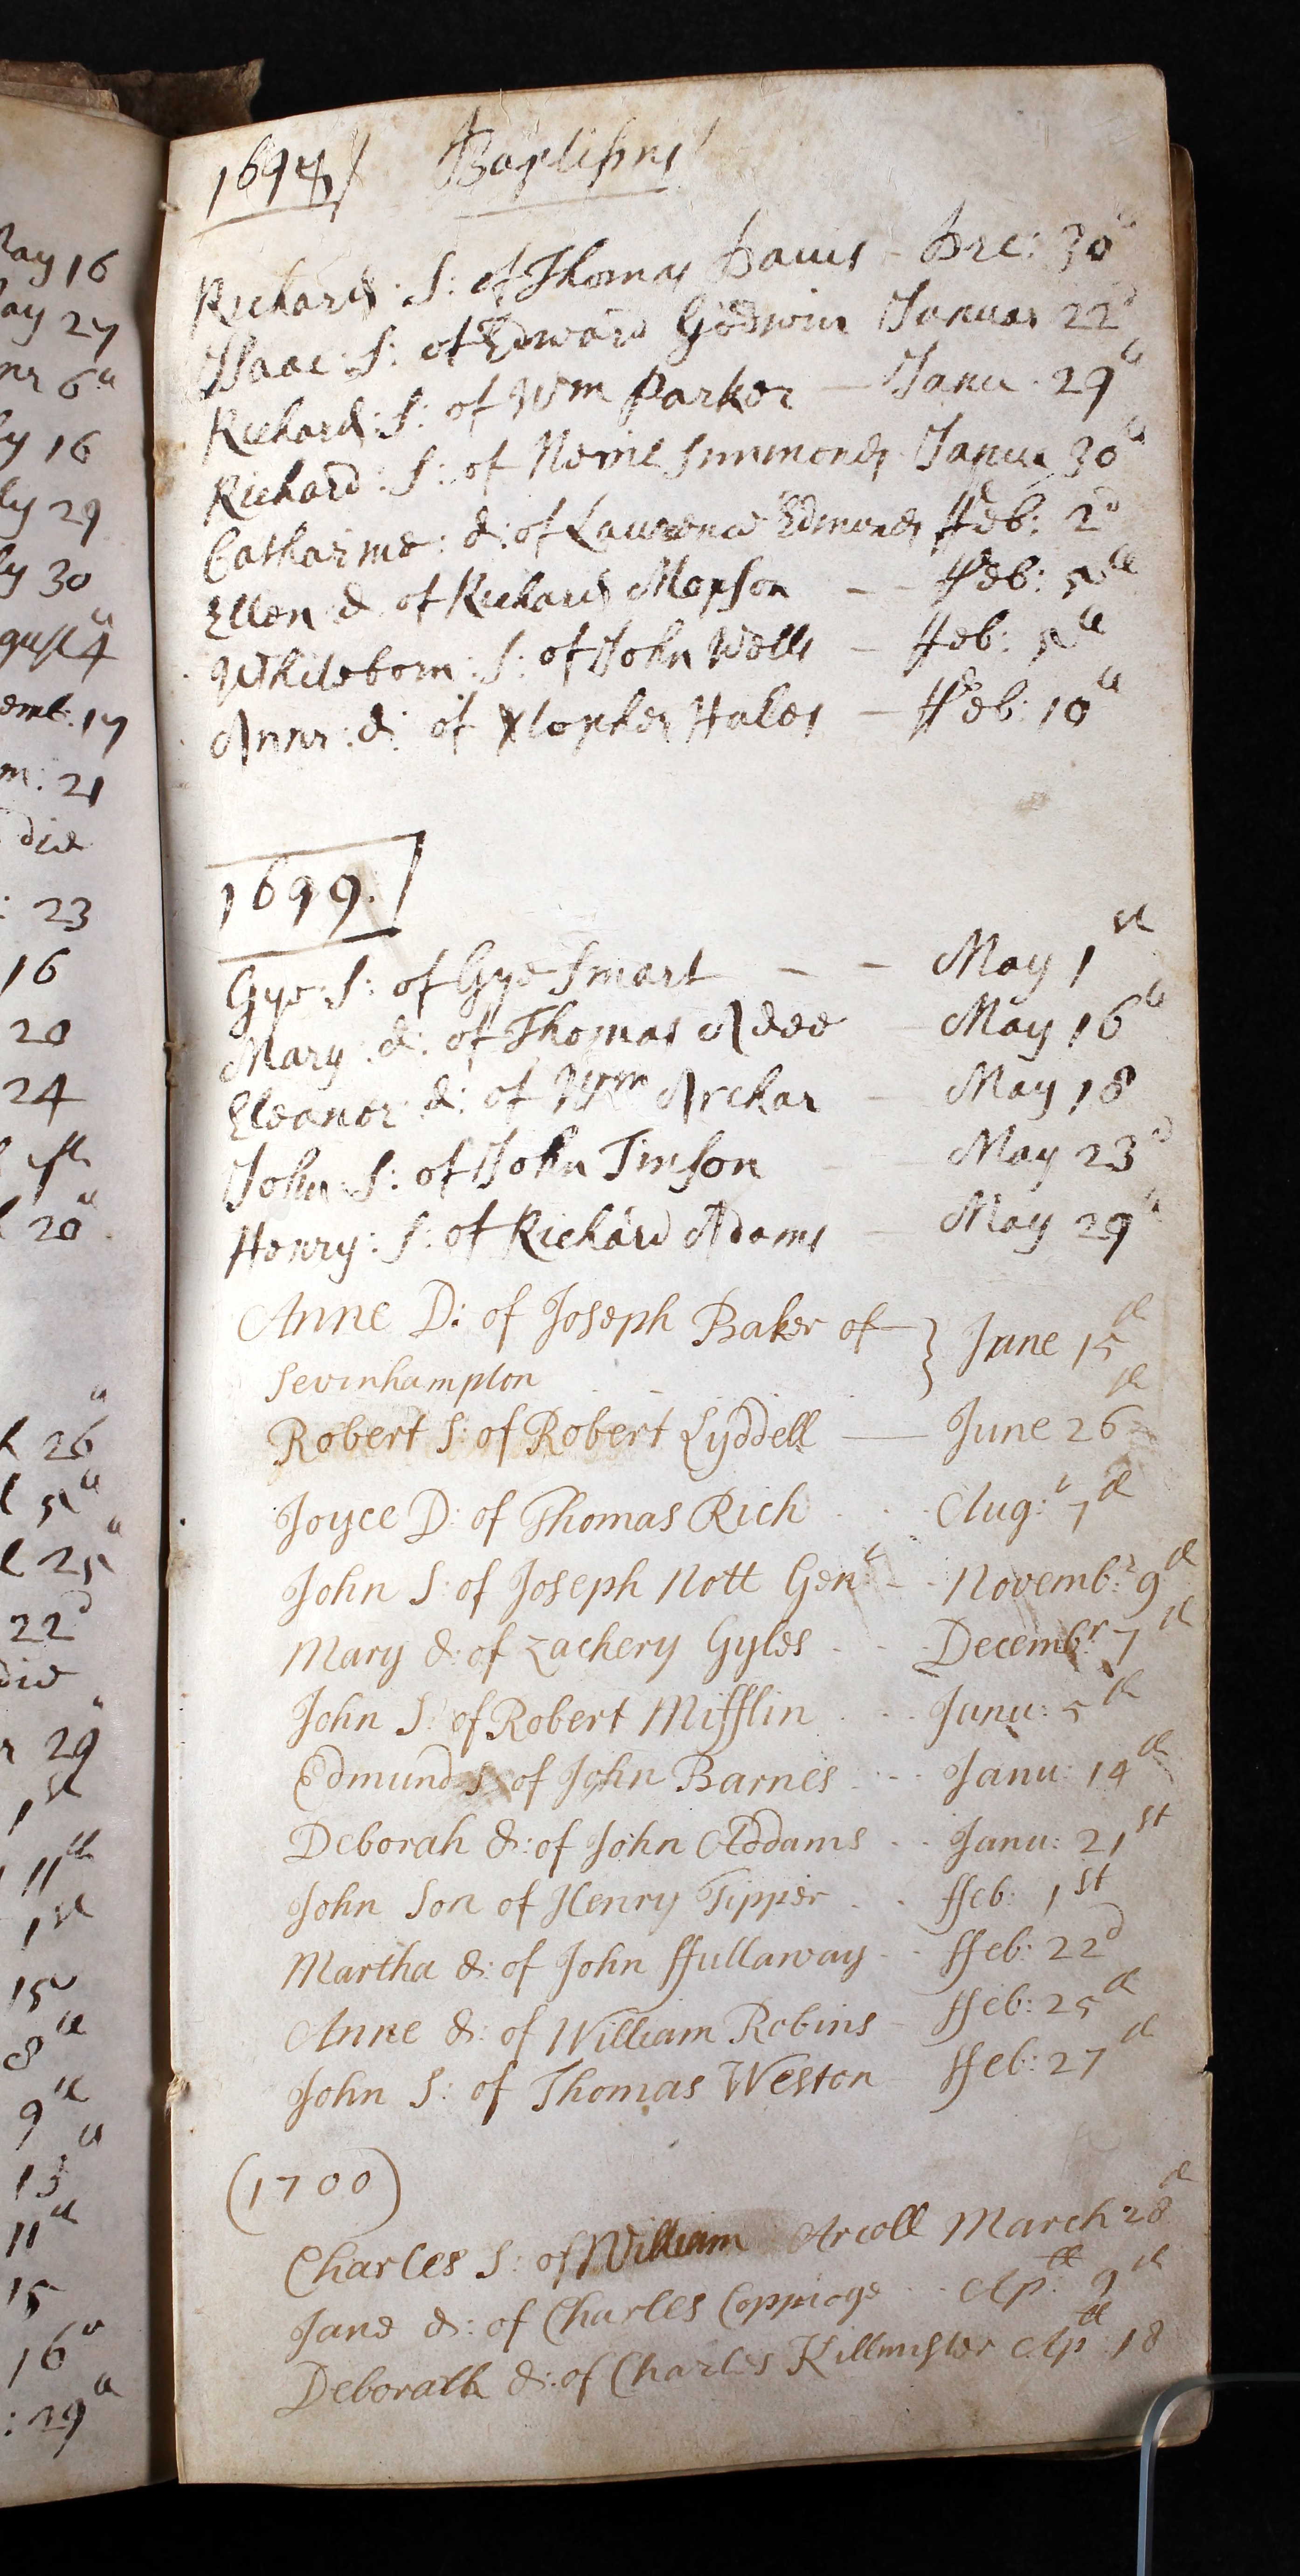 May 16
May 27
6th
July 16
July 29
July 30
August 4th
17
21
die
23
16
20
24
20th
26th
5th
25th
22d
die
29th
1st
11th
1st
15
8th
9th
13th
11th
15
16th
: 29th
1698 Baptisms
Richard: S: of Thomas Davis - Dec: 30th
Isaac: S: of Edward Godwin Januar 22d
Richard: S: of Wm Parker — Janu. 29th
Richard: S: of Simmonds Janua 30th
Catharine: d: of Lawrence Edmonds ffeb: 2d
Ellen d of Richard Mopson — ffeb: 5th
Whitehorn: S: of John Wells — ffeb: 5th
Anne: d: of Xtopher Hales — ffeb: 10th
1699.
Gye: S: of Gye Smart — — May 1st
Mary: d: of Thomas Adee May 16th
Eleanor d: of Wm Archar — May 18
John: S: of John Timson May 23d
Henry: S: of Richard Adams — May 29th
Anne D: of Joseph Baker of } June 15th
Sevinhampton
Robert S: of Robert Lyddell — June 26th
Joyce D: of Thomas Rich Aug:t 7th
John S: of Joseph Nott Gent Novemb:r 9th
Mary d: of Zachery Gyles Decembr 7th
John S: of Robert Mifflin Janu: 5th
Edmund S: of John Barnes Janu: 14th
Deborah d: of John Addams Janu: 21st
John Son of Henry Tipper ffeb: 1st
Martha d: of John ffullaway ffeb: 22d
Anne d: of William Robins ffeb: 25th
John S: of Thomas Weston ffeb: 27th
(1700)
Charles S: of William Arcoll March 28th
Jane d: of Charles Coppioge Ap:ll 9th
Deborath d: of Charles Killmister Apll 18